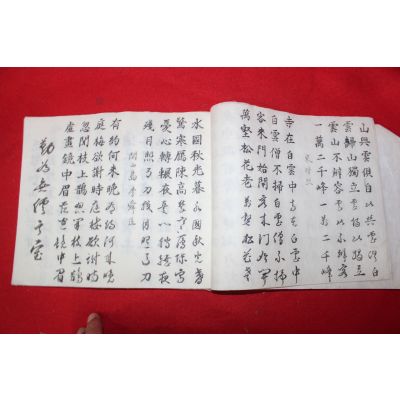 山與雲俱白 山與雲俱白
雲歸山獨立 雲歸山獨立
雲山不辨容 雲山不辨容
一萬二千峰 一萬二千峰
寺在白雲中 寺在白雲中
白雲僧不掃 白雲僧不掃
客來門始開 客來門始開
萬壑松花老 萬壑松花老
水國秋光暮 水國秋光暮
驚寒雁陣高 驚寒雁陣高
憂心轉輾夜 憂心轉輾夜
殘月照弓刀 殘月照弓刀
閑山島 李舜臣
有約何來晚 有約何來晚
庭梅欲謝時 庭梅欲謝時
忽聞枝上鵲 忽聞枝上鵲
虛畫鏡中眉 虛畫鏡中眉
勤為無價之寶